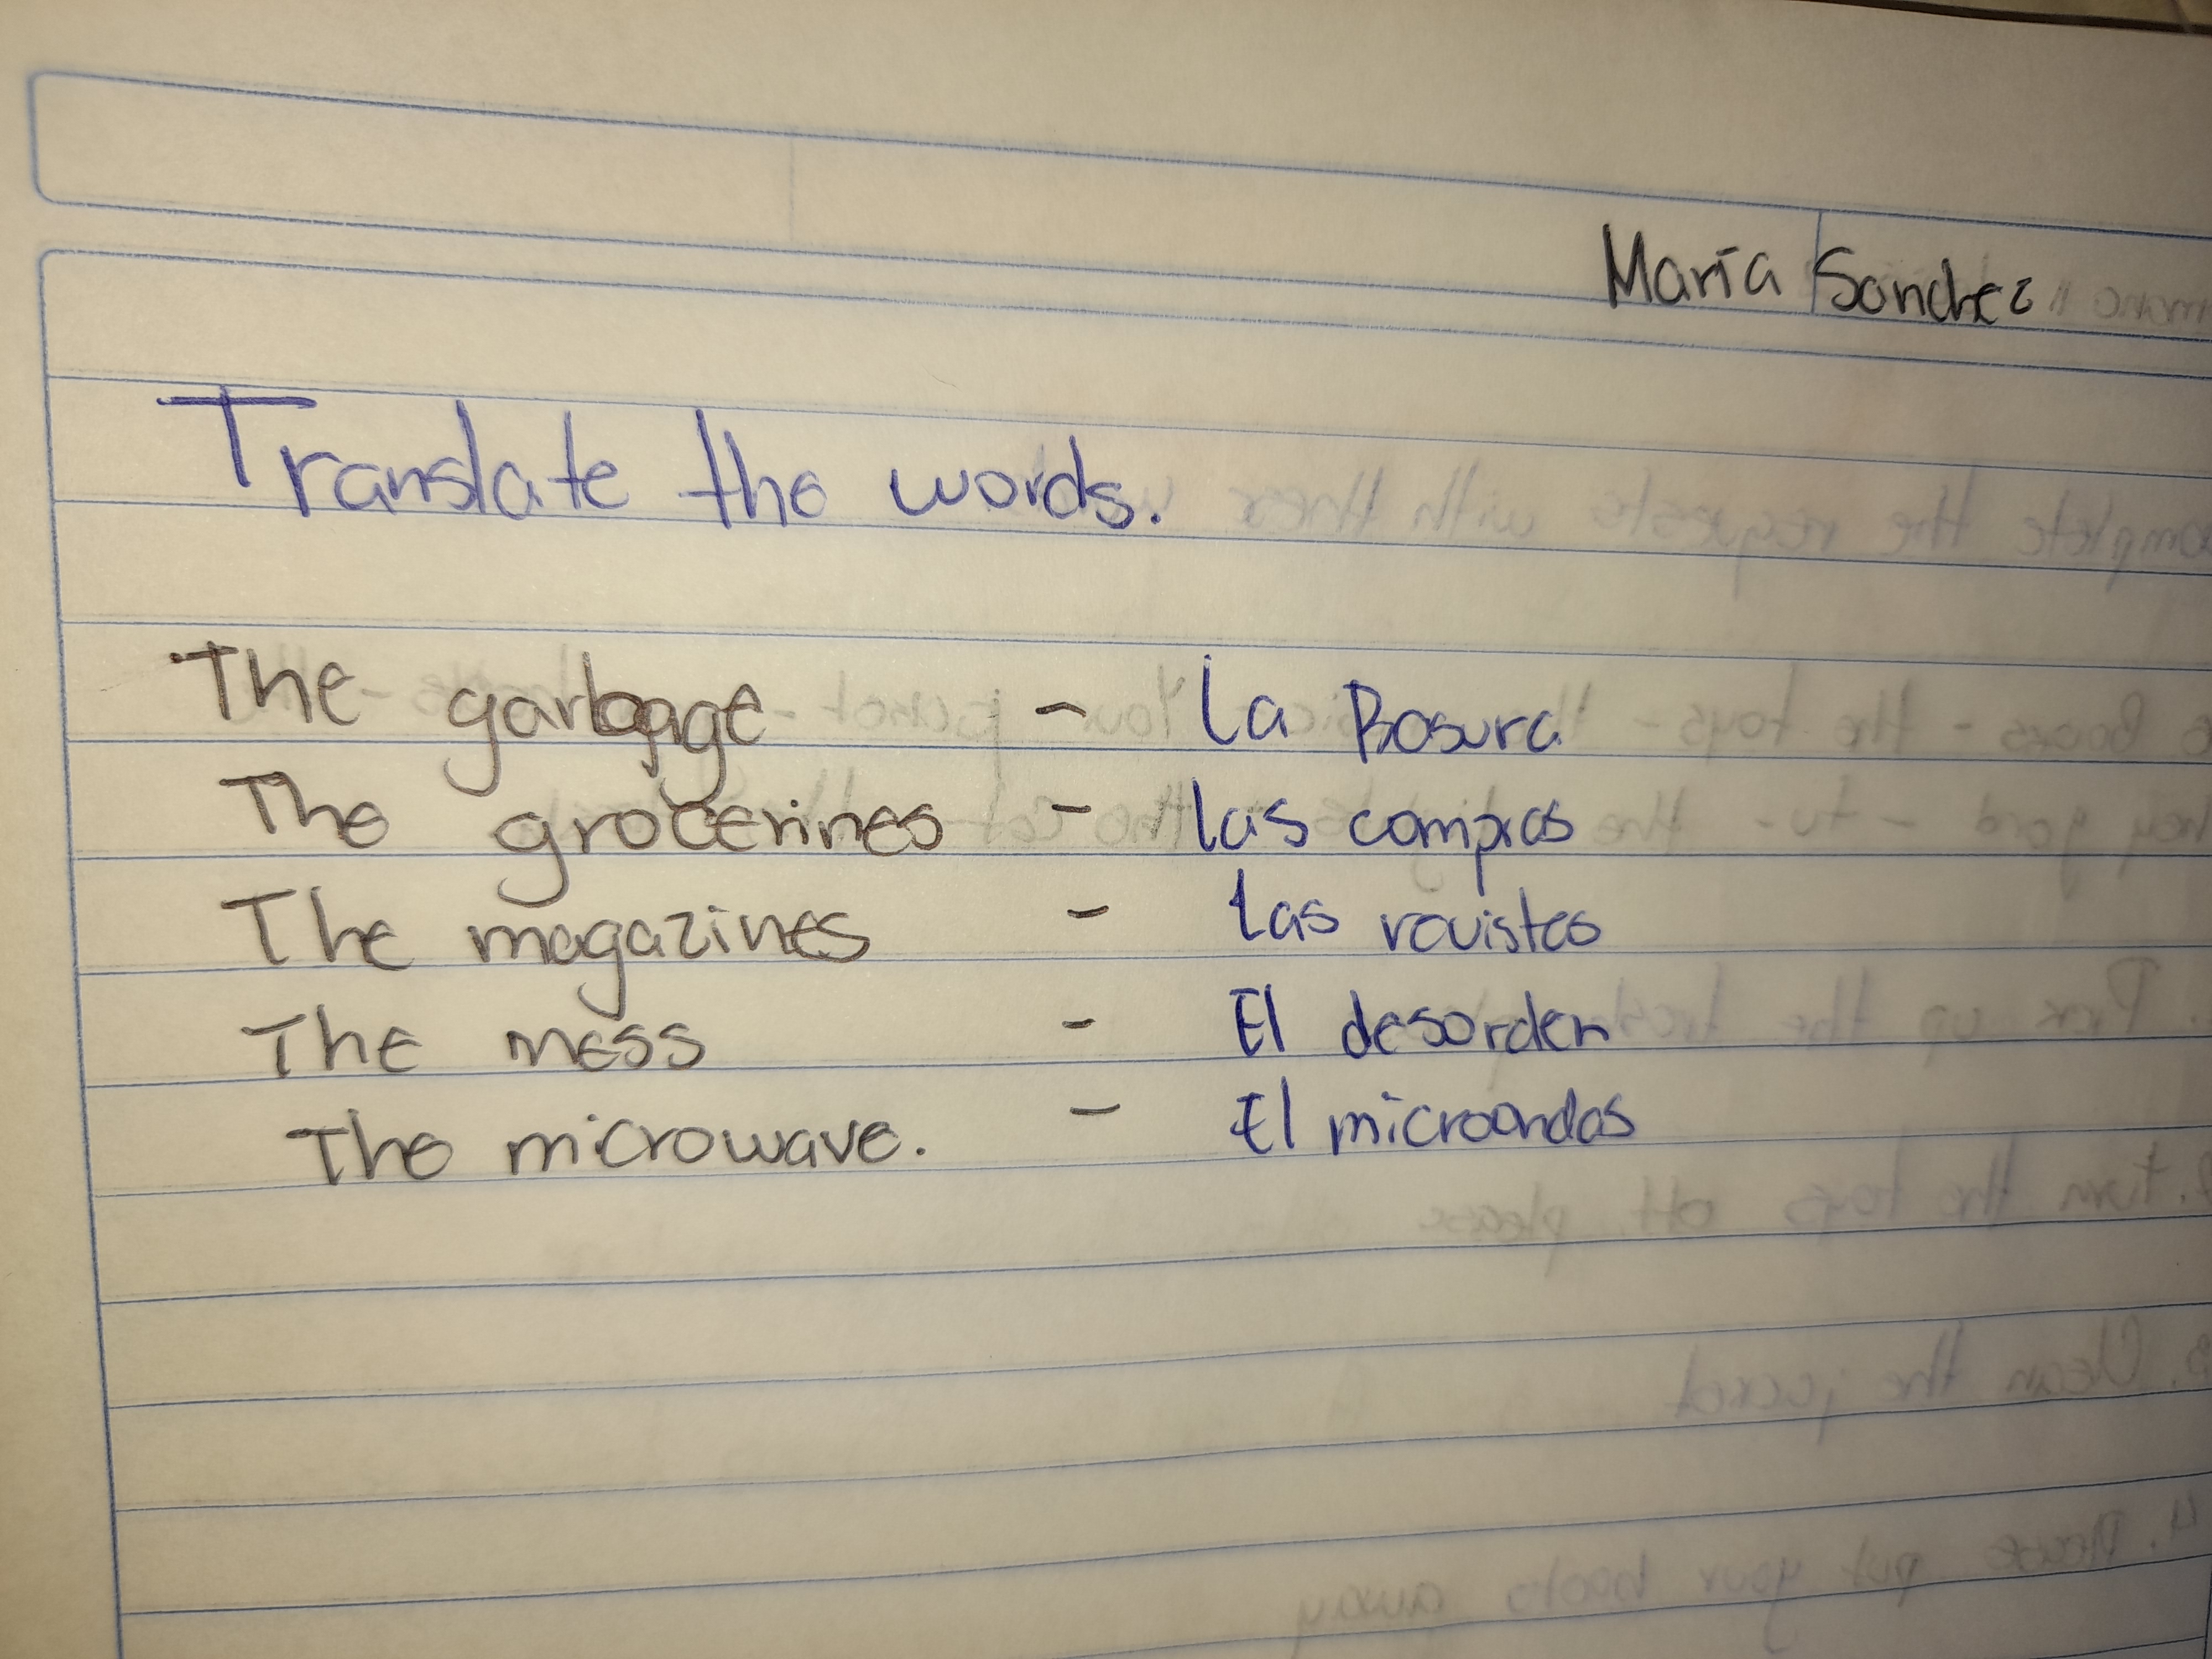 María Sanchez
Translate the words.
The garbage - la Basura
The grocerines - las compras
The magazines - las revistas
The mess - El desorden
The microwave. - El microondas